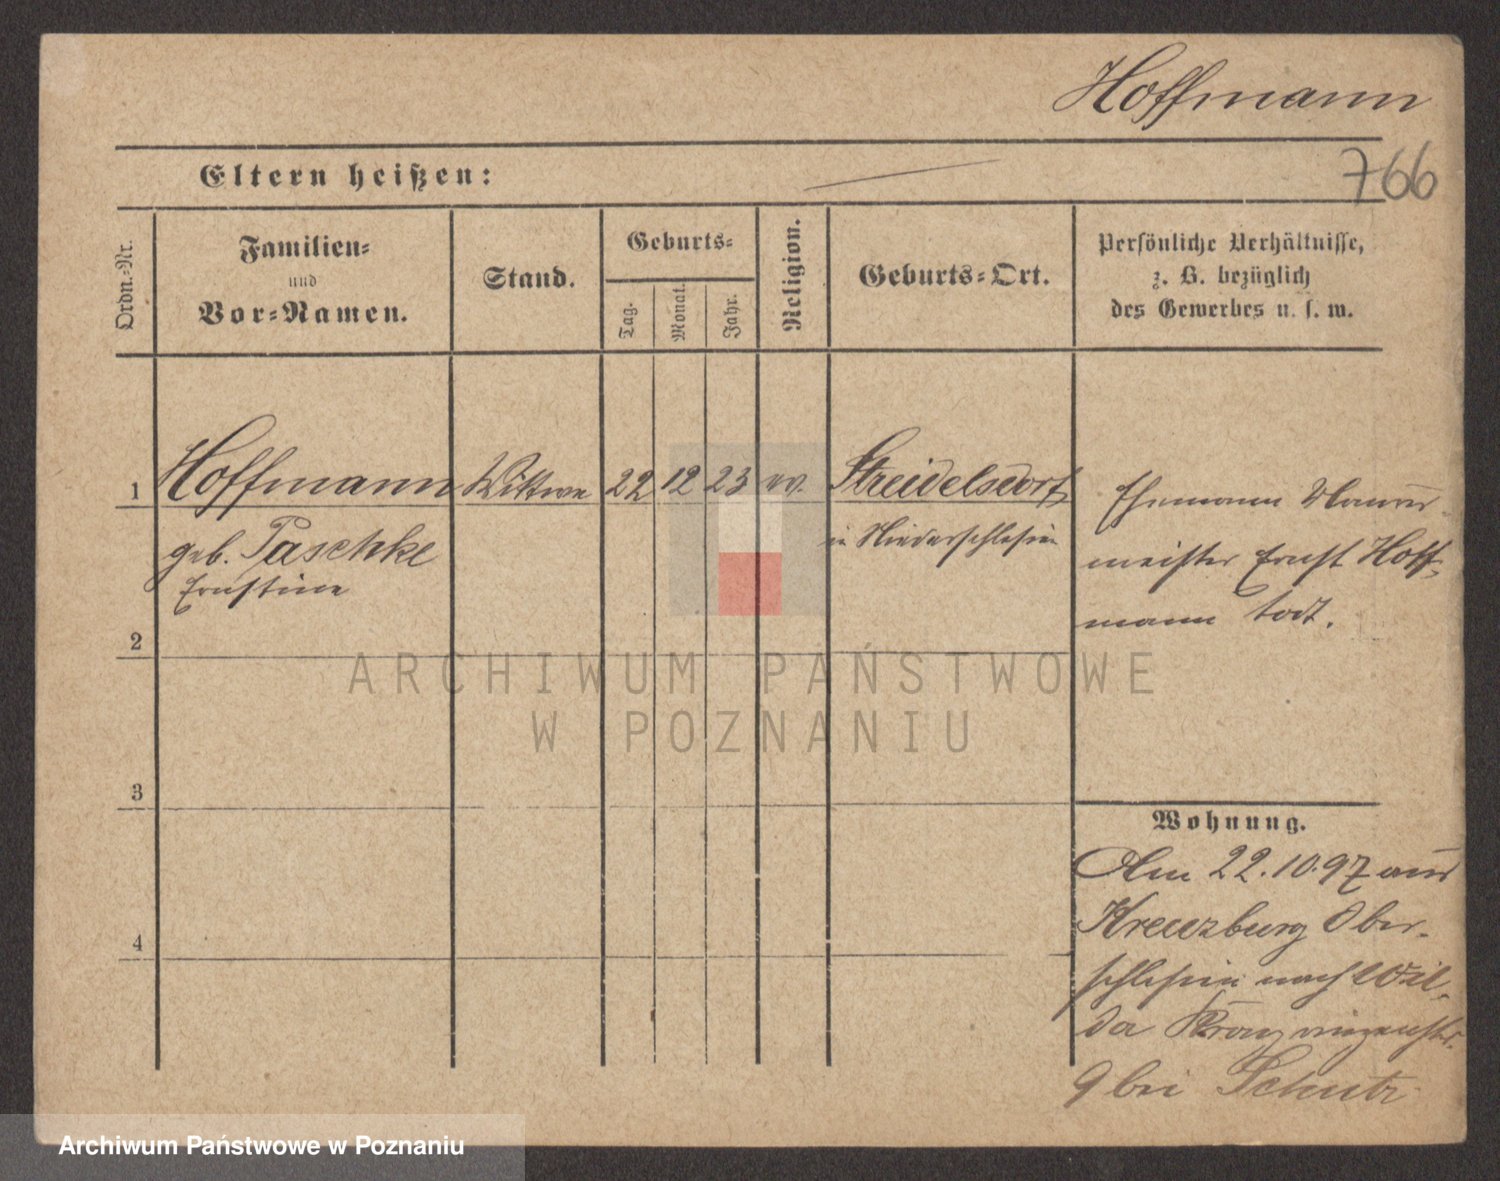 Hoffmann
766
Eltern heißen:
Ordn.-Nr.
Familien-
und
Vor-Namen.
Stand.
Geburts-
Tag.
Monat.
Jahr.
Religion.
Geburts-Ort.
Persönliche Verhältnisse,
z. B. bezüglich
des Gewerbes u. s. w.
1 Hoffmann Wittwe 22 12 23 ev. Streidelsdorf
geb. Paschke
Ernstine
in Niederschlesien
Ehemann Maurer-
meister Ernst Hoff-
mann todt.
2
3
4
ARCHIWUM PAŃSTWOWE
W POZNANIU
Wohnung.
Am 22.10.97 aus
Kreuzburg Ober-
schlesien nach Wil-
da
9 bei Schutz
Archiwum Państwowe w Poznaniu